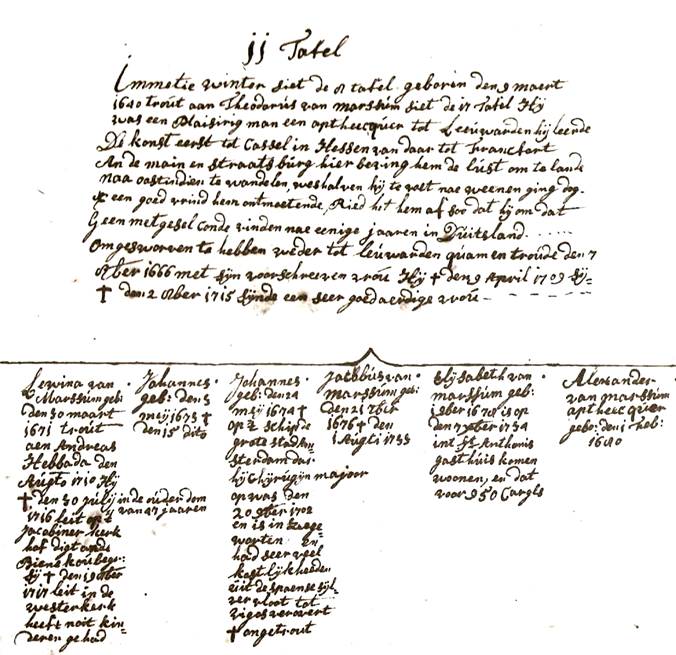 jj Tafel
Immetie winter siet de 8 tafel geboren den 9 maert
1640 trout aan Theodorus van marssum siet de 17 Tafel Hij
was een Plaisirig man een aptheecquer tot Leeuwarden hij leerde
De konst eerst tot Cassel in Hessen van daar tot Francfort
An de main en straatsburg hier beving hem de lust om te lande
naa oostindien te wandelen, weshalven hij te voet nae weenen ging dog
een goed vrind hem ontmoetende, Ried hit hem af soo dat hij om dat
Geen metgesel conde vinden nae eenige jaaren in Duitsland
Omgesworven te hebben weder tot leuwarden quam en troude den 7
8ber 1666 met sijn voorschreeven vrou Hij † den 9 April 1709 sij
† den 2 8ber 1715 sijnde een seer goedaerdige vrou
Lewina van
Marssum geb:
den 30 maart
1671 trout
aen Andreas
Hebbada den
Augto 1710 Hij
† den 30 julij in de ouder dom
1716 leit op t van 47 jaaren
Jacobiner kerk
hof digt aende
sij † den 19 8ber
1717 leit in de
westerkerk
heeft noit kin=
deren gehad
Johannes
geb: den 3
meij 1673 †
den 15 dito
Johannes
geb: den 24
meij 1674 †
op 't schip de
grote stad Am=
sterdam daer
hij Chijrurgijn majoor
op was den
20 9ber 1702
en is in zee ge
worpen en
had seer veel
kostlijkheeden
uit de spaense sil=
ver vloot tot
vigos verovert
† ongetrout
Jacobus van
marssum geb:
den 21 7ber
1676 † den
1 Augti 1733
Elijsabeth van
marssum geb:
1678 is op
den 7 1734
int St Anthonis
gasthuis komen
woonen, en dat
voor 950 Cargls
Alexander
van marssum
aptheecquer
gebo: den 1 feb:
1680